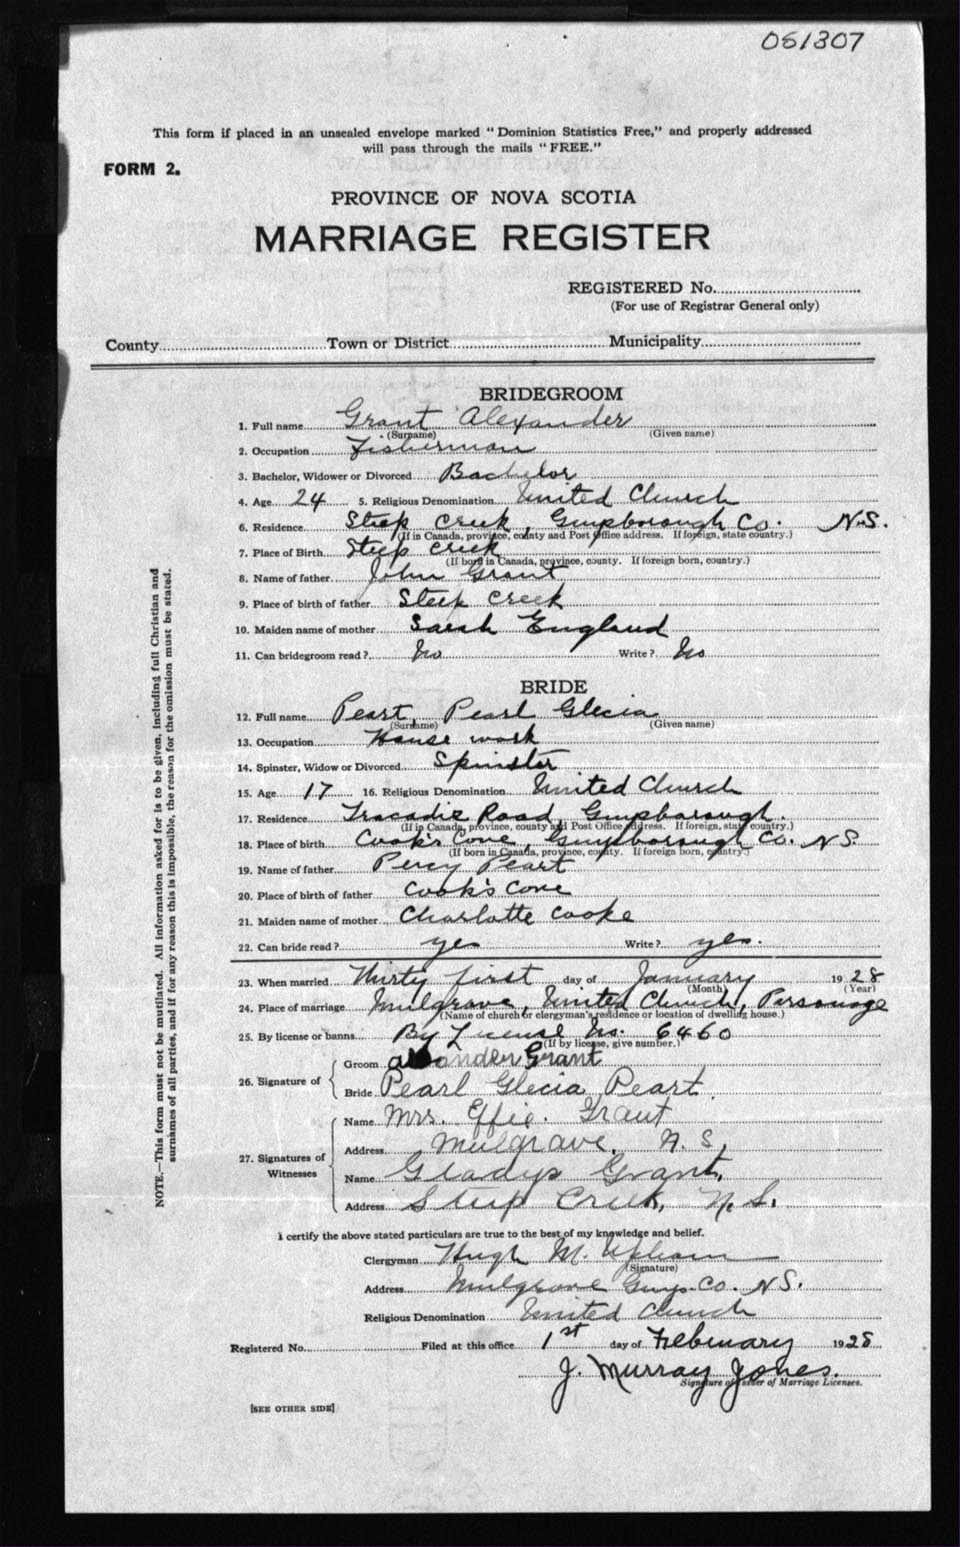 051307
This form if placed in an unsealed envelope marked "Dominion Statistics Free," and properly addressed
will pass through the mails "FREE."
FORM 2.
PROVINCE OF NOVA SCOTIA
MARRIAGE REGISTER
REGISTERED No.
(For use of Registrar General only)
County Town or District Municipality
BRIDEGROOM
1. Full name Grant Alexander
(Surname) (Given name)
2. Occupation Fisherman
3. Bachelor, Widower or Divorced Bachelor
4. Age 24 5. Religious Denomination United Church
6. Residence Steep Creek, Guysborough Co. N.S.
(If in Canada, province, county and Post Office address. If foreign, state country.)
7. Place of Birth Steep Creek
(If born in Canada, province, county. If foreign born, country.)
8. Name of father John Grant
9. Place of birth of father Steep Creek
10. Maiden name of mother Sarah England
11. Can bridegroom read? No Write? No
BRIDE
12. Full name Peart, Pearl Glecia
(Surname) (Given name)
13. Occupation House work
14. Spinster, Widow or Divorced Spinster
15. Age 17 16. Religious Denomination United Church
17. Residence Tracadie Road, Guysborough.
(If in Canada, province, county and Post Office address. If foreign, state country.)
18. Place of birth Cook's Cove, Guysborough Co. N S.
(If born in Canada, province, county. If foreign born, country.)
19. Name of father Percy Peart
20. Place of birth of father Cook's Cove
21. Maiden name of mother Charlotte Cooke
22. Can bride read? yes Write? yes.
23. When married Thirty first day of January 1928
(Month) (Year)
24. Place of marriage Mulgrave, United Church, Parsonage
(Name of church or clergyman's residence or location of dwelling house.)
25. By license or banns By License No. 6460
(If by license, give number.)
26. Signature of
Groom Grant
Bride Pearl Glecia Peart
27. Signatures of Witnesses
Name Mrs. Effie. Grant
Address Mulgrave, N. S,
Name Gladys Grant,
Address Steep Creek, N. S.
I certify the above stated particulars are true to the best of my knowledge and belief.
Clergyman Hugh M. Upham
(Signature)
Address Mulgrave Guys. Co. N S.
Religious Denomination United Church
Registered No. Filed at this office 1st day of Febuary 1928
J. Murray Jones.
Signature of Issuer of Marriage Licenses.
[SEE OTHER SIDE]
NOTE.—This form must not be mutilated. All information asked for is to be given, including full Christian and
surnames of all parties, and if for any reason this is impossible, the reason for the omission must be stated.